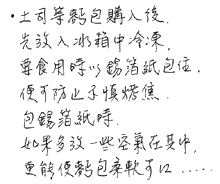 •土司等麵包購入後,
先放入冰箱中冷凍,
要食用時以錫箔紙包住,
便可防止不慎烤焦.
包錫箔紙時.
如果多放一些空氣在其中,
更能使麵包柔軟可口.....